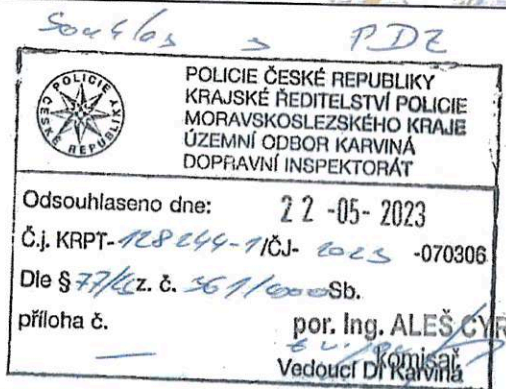 Souhlas s PDZ
POLICIE ČESKÉ REPUBLIKY
KRAJSKÉ ŘEDITELSTVÍ POLICIE
MORAVSKOSLEZSKÉHO KRAJE
ÚZEMNÍ ODBOR KARVINÁ
DOPRAVNÍ INSPEKTORÁT
POLICIE
ČESKÉ REPUBLIKY
Odsouhlaseno dne: 22 -05- 2023
Č.j. KRPT-128244-1/ČJ- 2023 -070306
Dle § 77/ z. č. 361/2000 Sb.
příloha č. —
por. Ing. ALEŠ CYR
komisař
Vedoucí DI Karviná